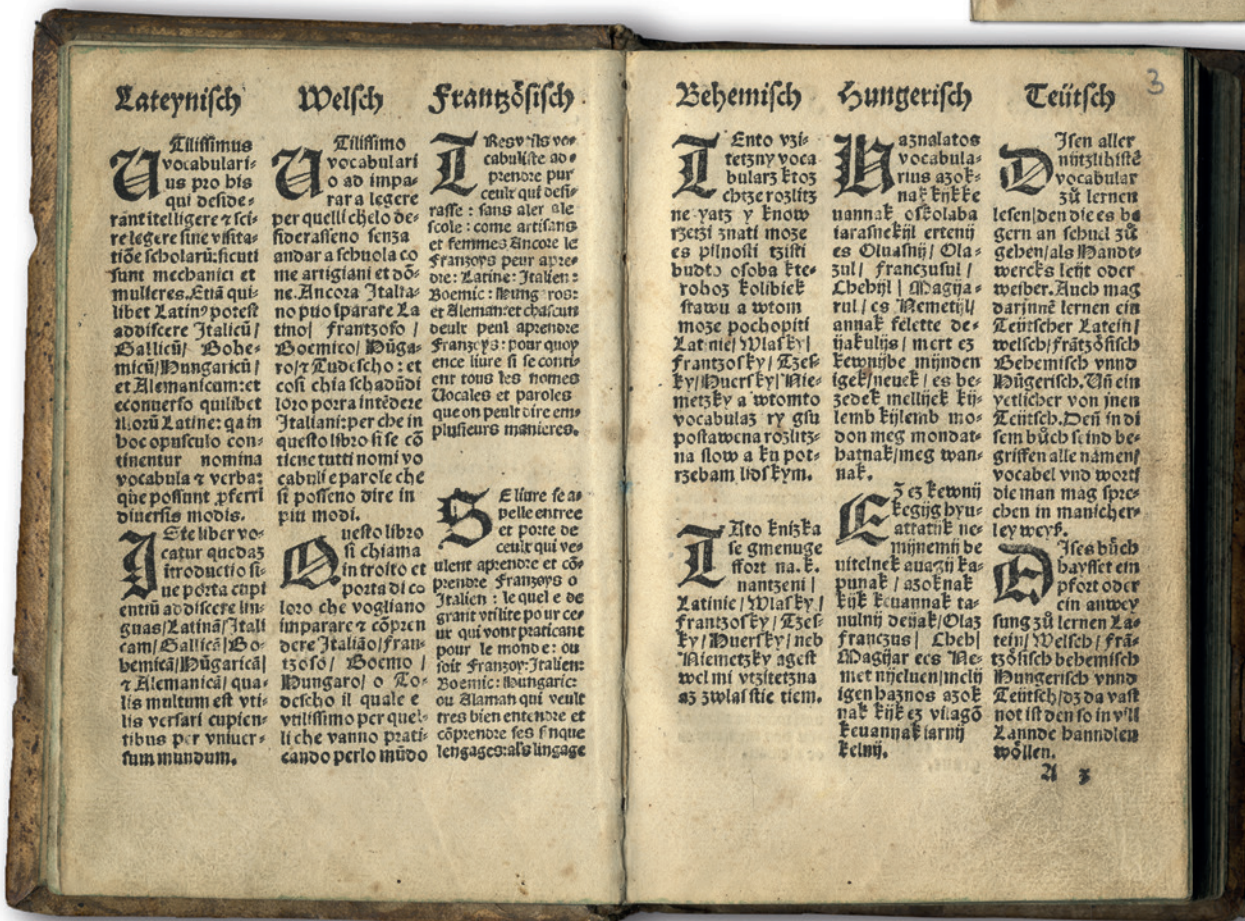 Lateynisch
UTilissimus
vocabulari-
us pro his
qui deside-
rant itelligere ⁊ sci-
re legere sine visita-
tiõe scholarũ: sicuti
sunt mechanici et
mulieres. Etiã qui-
libet Latinꝰ potest
addiscere Italicũ/
Gallicũ/ Bohe-
micũ/ Hungaricũ/
et Alemanicum: et
econuerso quilibet
illorũ Latine: qa in
hoc opusculo con-
tinentur nomina
vocabula ⁊ verba:
que possunt ꝓferri
diuersis modis.
ISte liber vo-
catur quedaʒ
ĩtroductio si-
ue porta cupi
entiũ addiscere lin-
guas/ Latinã/ Itali
cam/ Gallicã/ Bo-
hemicã/ Hũgaricã/
⁊ Alemanicã/ qua-
lis multum est vti-
lis versari cupien-
tibus per vniuer-
sum mundum.
Welsch
UTilissimo
vocabulari
o ad impa-
rar a legere
per quelli chelo de-
siderasseno senza
andar a schuola co
me artigiani et dõ-
ne. Ancora Italia-
no puo ĩparare La
tino/ frantzoso/
Boemico/ Hũga-
ro/ ⁊ Tudescho: et
cosi chia schadũdi
loro porra intẽdere
Italiani: per che in
questo libro si se cõ
tiene tutti nomi vo
cabuli e parole che
si posseno dire in
piu modi.
Questo libro
si chiama
introito et
porta di co
loro che vogliano
imparare ⁊ cõpren
dere Italião/ fran-
tzoso/ Boemo /
Hungaro/ o To-
descho il quale e
vtilissimo per quel-
li che vanno prati-
cando perlo mũdo
Frantzösisch
TResv tils vo-
cabuliste ad-
prendre pur
ceulx qui desi-
rasse : sans aler ale
scole : come artisans
et femmes Ancore le
Franzoys peur apre-
dre: Latine: Italien:
Boemic: Hung ros:
et Aleman: et chascun
deulx peul aprendre
Franzeys: pour quoy
ence liure si se conti-
enr tous les nomes
Uocales et paroles
que on peult dire em-
plusieurs manieres.
SE liure se a-
pelle entree
et porte de
ceulx qui ve-
ulent aprendre et cõ-
prendre Franzoys o
Italien : le quel e de
grant vtilite pour ce-
ur qui vont praticant
pour le monde: ou
soit Franzoy: Italien:
Boemic: Hungaric:
ou Alaman qui veult
tres bien entendre et
cõprendre ses sinque
lengages: als lingage
Behemisch
TEnto vzi-
tetzny voca
bularz ktoz
chtze rozlitz
ne yatz y know
rzetzi znati moze
es pilnosti tzisti
budto osoba kte-
rohoz kolibiek
stawu a wtom
moze pochopiti
Latinie/ Wlasky/
Frantzosky/ Tzes-
ky/ Huersky/ Nie-
metzky a wtomto
vocabulaz ry gsu
postawena rozlitz-
na slow a ku pot-
rzebam lidskym.
TAto knizka
se gmenuge
ffort na. k.
nantzeni /
Latinie/ Wlasky/
Frantzosky/ Tzes-
ky/ Huersky/ neb
Niemetzky agest
wel mi vtzitetzna
az zwlasstie tiem.
Hungerisch
Haznalatos
vocabula-
rius azok-
nak kyk ke
uannak oskolaba
iarasnekyl ertenij
es Oluasnij/ Ola-
zul/ franczusul /
Chehyl / Magya-
rul/ es Nemetijl/
annak felette de-
ijakulijs/ mert ez
kewnijbe mijnden
igek/ neuek / es be-
zedek mellijek kij-
lemb kijlemb mo-
don meg mondat-
hatnak/ meg wan-
nak.
EZ ez kewnij
kegijg byu-
attatik ne-
mijnemij be
uitelnek auagij ka-
punak / azoknak
kijk keuannak ta-
nulnij deijak/ Olaz
franczus/ Cheh/
Magijar ecs Ne-
met nijeluen/ melij
igen haznos azok
nak kijk ez vilagõ
keuannak iarnij
kelnij.
Teütsch
3
DIsen aller
nützlihistẽ
vocabular
zů lernen
lesen/ den die es be
gern an schuel zů
gehen/ als Handt-
wercks leijt oder
weiber. Auch mag
darjnne lernen ein
Teütscher Latein/
welsch/ frãtzösisch
Behemisch vnnd
Hũgerisch. Uñ ein
yetlicher von jnen
Teütsch. Deñ in di
sem bůch seind be-
griffen alle námen/
vocabel vnd wort/
die man mag spre-
chen in manicher-
ley weyß.
DIses bůch
haysset ein
pfort oder
ein anwey
sung zů lernen La-
tein/ Welsch/ frã-
tzösisch behemisch
Hungerisch vnnd
Teütsch/ dz da vast
not ist den so in vil
Lannde hanndlen
wöllen.
A 3